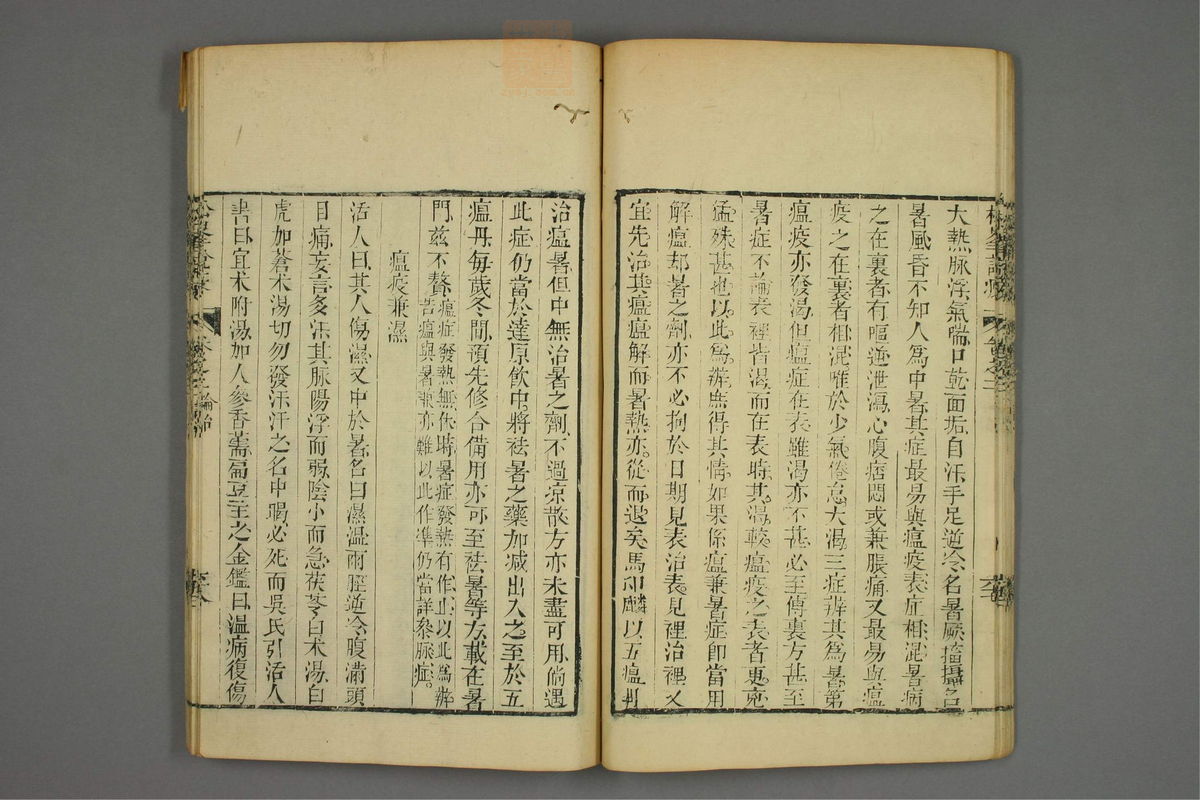 大熱脉浮氣喘口乾面垢自汗手足逆冷名暑厥搐搦名曰
暑風昏不知人爲中暑其症最易與瘟疫表症相混暑病
之在裏者有嘔逆泄瀉心腹痞悶或兼脹痛又最易與瘟
疫之在裏者相混唯於少氣倦怠大渴三症辨其爲暑第
瘟疫亦發渴但瘟症在表雖渴亦不甚必至傳裏方甚至
暑症不論表裡皆渴而在表時其渴較瘟疫之表者更兇
猛殊甚也以此爲辨庶得其情如果係瘟兼暑症卽當用
解瘟却暑之劑亦不必拘於日期見表治表見裡治裡又
宜先治其瘟瘟解而暑熱亦從而退矣馬印麟以五瘟丹
治瘟暑但中無治暑之劑不過涼散方亦未盡可用倘遇
此症仍當於達原飲中將祛暑之藥加減出入之至於五
瘟丹每歲冬間預先修合備用亦可至祛暑等方載在暑
門茲不贅瘟症發熱無休時暑症發熱有作止以此爲辨
若瘟與暑兼亦難以此作準仍當詳叅脈症
瘟疫兼濕
活人曰其人傷濕又中於暑名曰濕溫兩脛逆冷腹滿頭
目痛妄言多汗其脉陽浮而弱陰小而急茯苓白术湯白
虎加蒼术湯切勿發汗汗之名中暍必死而吳氏引活人
書曰宜术附湯加人參香薷扁豆主之金鑑曰溫病復傷
松峯說疫
卷之二
論治